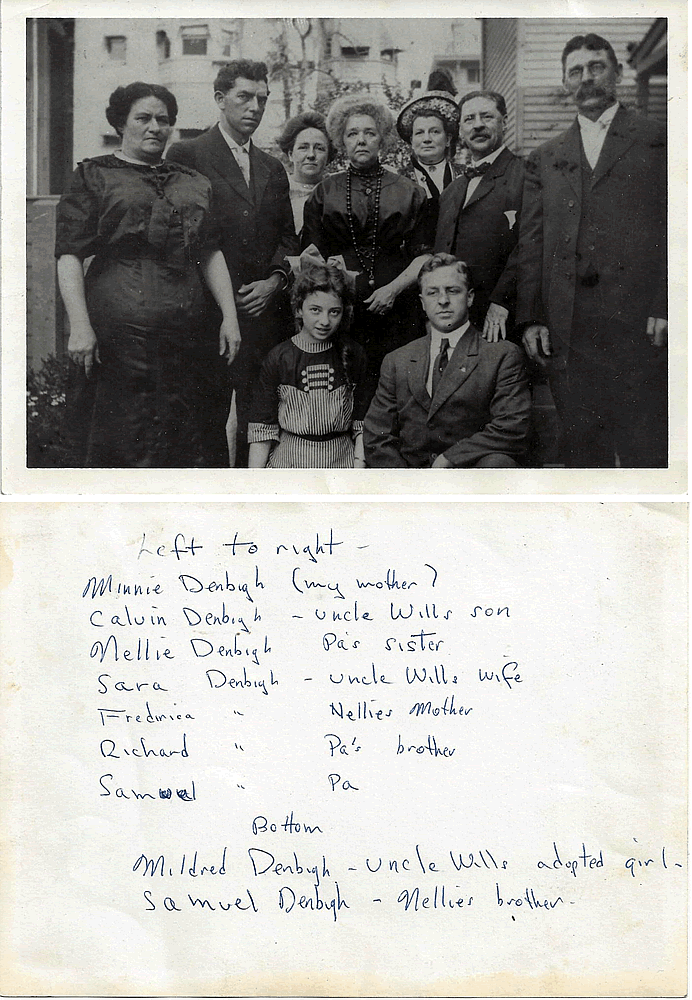 Left to right -
Minnie Denbigh (my mother)
Calvin Denbigh - uncle Wills son
Nellie Denbigh Pa's sister
Sara Denbigh - uncle Wills wife
Fredrica " Nellies Mother
Richard " Pa's brother
Samuel " Pa
Bottom
Mildred Denbigh - uncle Wills adopted girl.
Samuel Denbigh - Nellies brother.